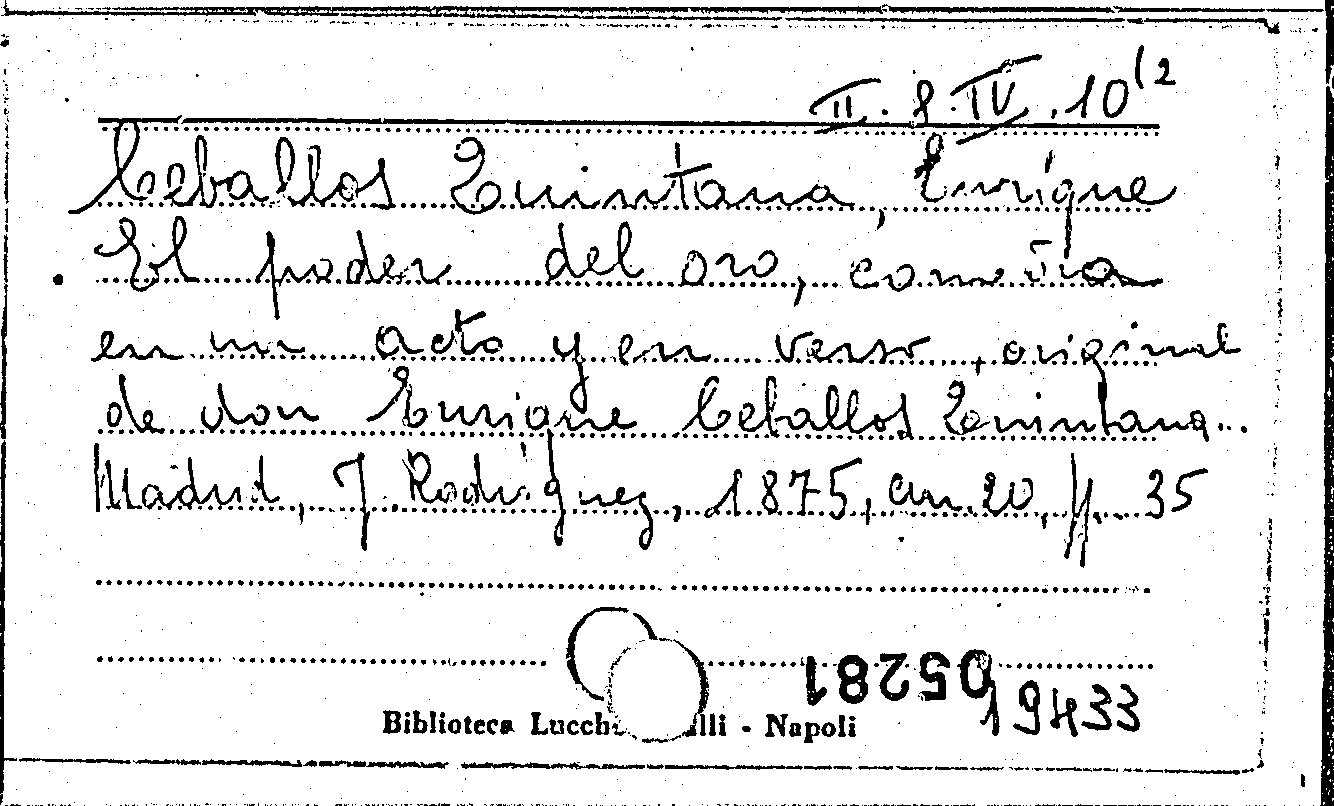 II. 8. IV. 10(2
Ceballos Quintana, Enrique
El poder del oro, comedia
en un acto y en verso, original
de don Enrique Ceballos Quintana...
Madrid, J. Rodríguez, 1875, cm. 20, pp. 35
05281
19433
Biblioteca Lucch lli - Napoli